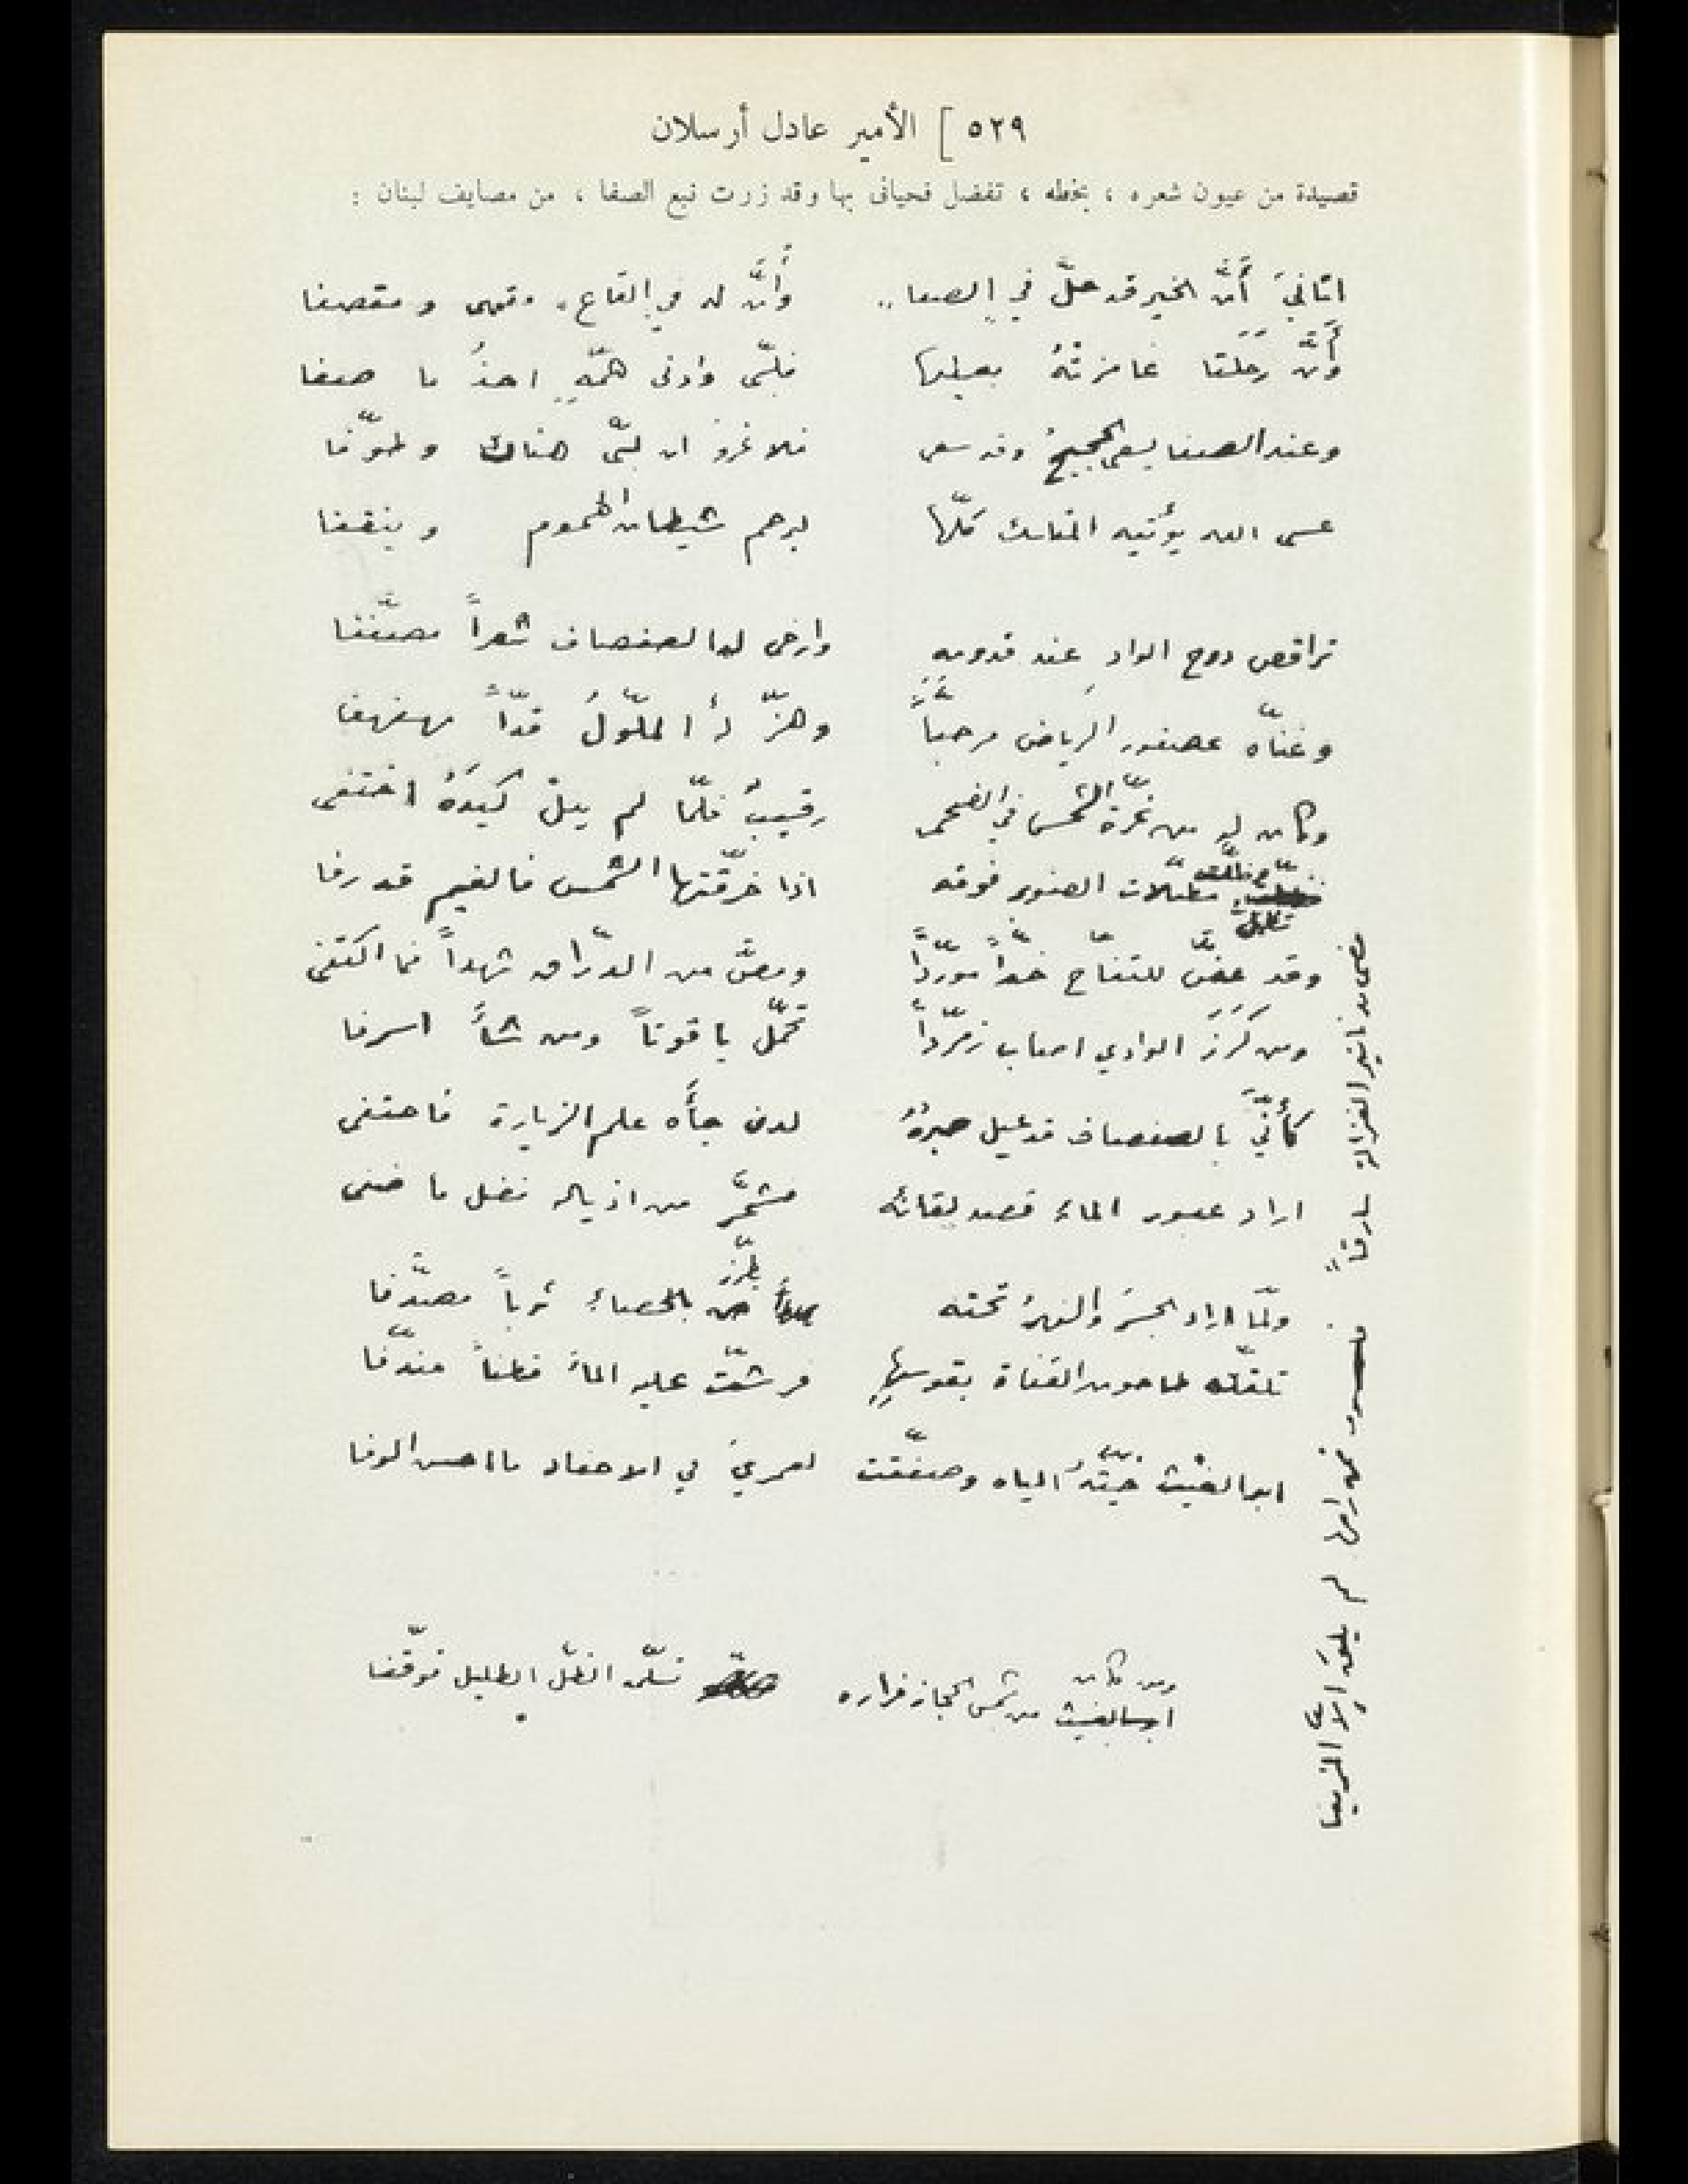 ٥٢٩ [ الأمير عادل أرسلان
قصيدة من عيون شعره ، بخطه ، تفضل فحياني بها وقد زرت نبع الصفا ، من مصايف لبنان :
اتاني أنّ الخير قد حلّ في الصفا وأنّ له في القاع مقهى ومقصفا
وأنّ رحلتا غامزتهُ بعطيها فلبّى وأدنى همّهِ اخذُ ما صفا
وعند الصفا يسعى الحجيجُ وقد سعى فلا غروَ ان لبّى هناك وطوّفا
عسى الله يؤتيه المناسك كلّها ليرجم شيطان الهموم وينقفا
تراقص دوح الوادِ عند قدومه وارخى له الصفصاف شعراً مصفّفا
وغنّاه عصفور الرياض مرحباً وهزّ لهُ الملّولُ قدّاً مهفهفا
وكان له من غرّة الشمس في الضحى رقيبٌ فلمّا لم ينل كيدهُ اختفى
مظلّات الصنوبر فوقه اذا خرّقتها الشمس فالغيم قد رفا
وقد عضّ للتفاح خدّاً مورّداً ومصّ من الدرّاق شهداً فما اكتفى
ومن كرز الوادي اصاب زمرّداً تحمّل ياقوتاً ومن شاء اسرفا
كأنّي بالصفصاف قد عيل صبرهُ لدن جاءه علم الزيارة فاحتفى
اراد عبور الماء قصد لقائه فشمّر من اذياله فضل ما ضفى
ولمّا اراد الجسرَ والنهرُ تحته طرّز بالحصباء ثوباً مصدّفا
تلقّته طاحون القناة بقوسها فرشّت عليه الماءَ قطناً مندّفا
ابو الغيث حيّتهُ المياه وصفّقت لعمري في الاحفاد ما احسن الوفا
ومن كان من شمس الحجاز فراره تسلّى الظلّ الظليل توقّفا
مضى من دنانير الغزالة سارقاً
فمن رامها لم يلقَ إلّا المزيفا